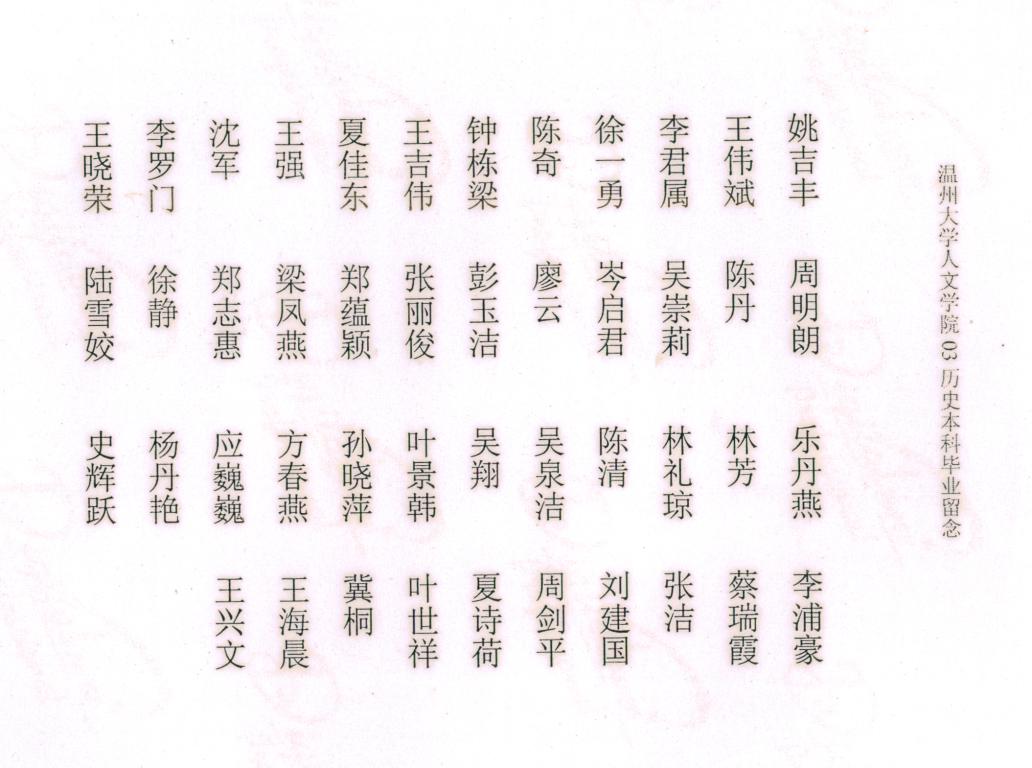 温州大学人文学院 03 历史本科毕业留念
姚吉丰 周明朗 乐丹燕 李浦豪
王伟斌 陈丹 林芳 蔡瑞霞
李君属 吴崇莉 林礼琼 张洁
徐一勇 岑启君 陈清 刘建国
陈奇 廖云 吴泉洁 周剑平
钟栋梁 彭玉洁 吴翔 夏诗荷
王吉伟 张丽俊 叶景韩 叶世祥
夏佳东 郑蕴颖 孙晓萍 冀桐
王强 梁凤燕 方春燕 王海晨
沈军 郑志惠 应巍巍 王兴文
李罗门 徐静 杨丹艳
王晓荣 陆雪姣 史辉跃